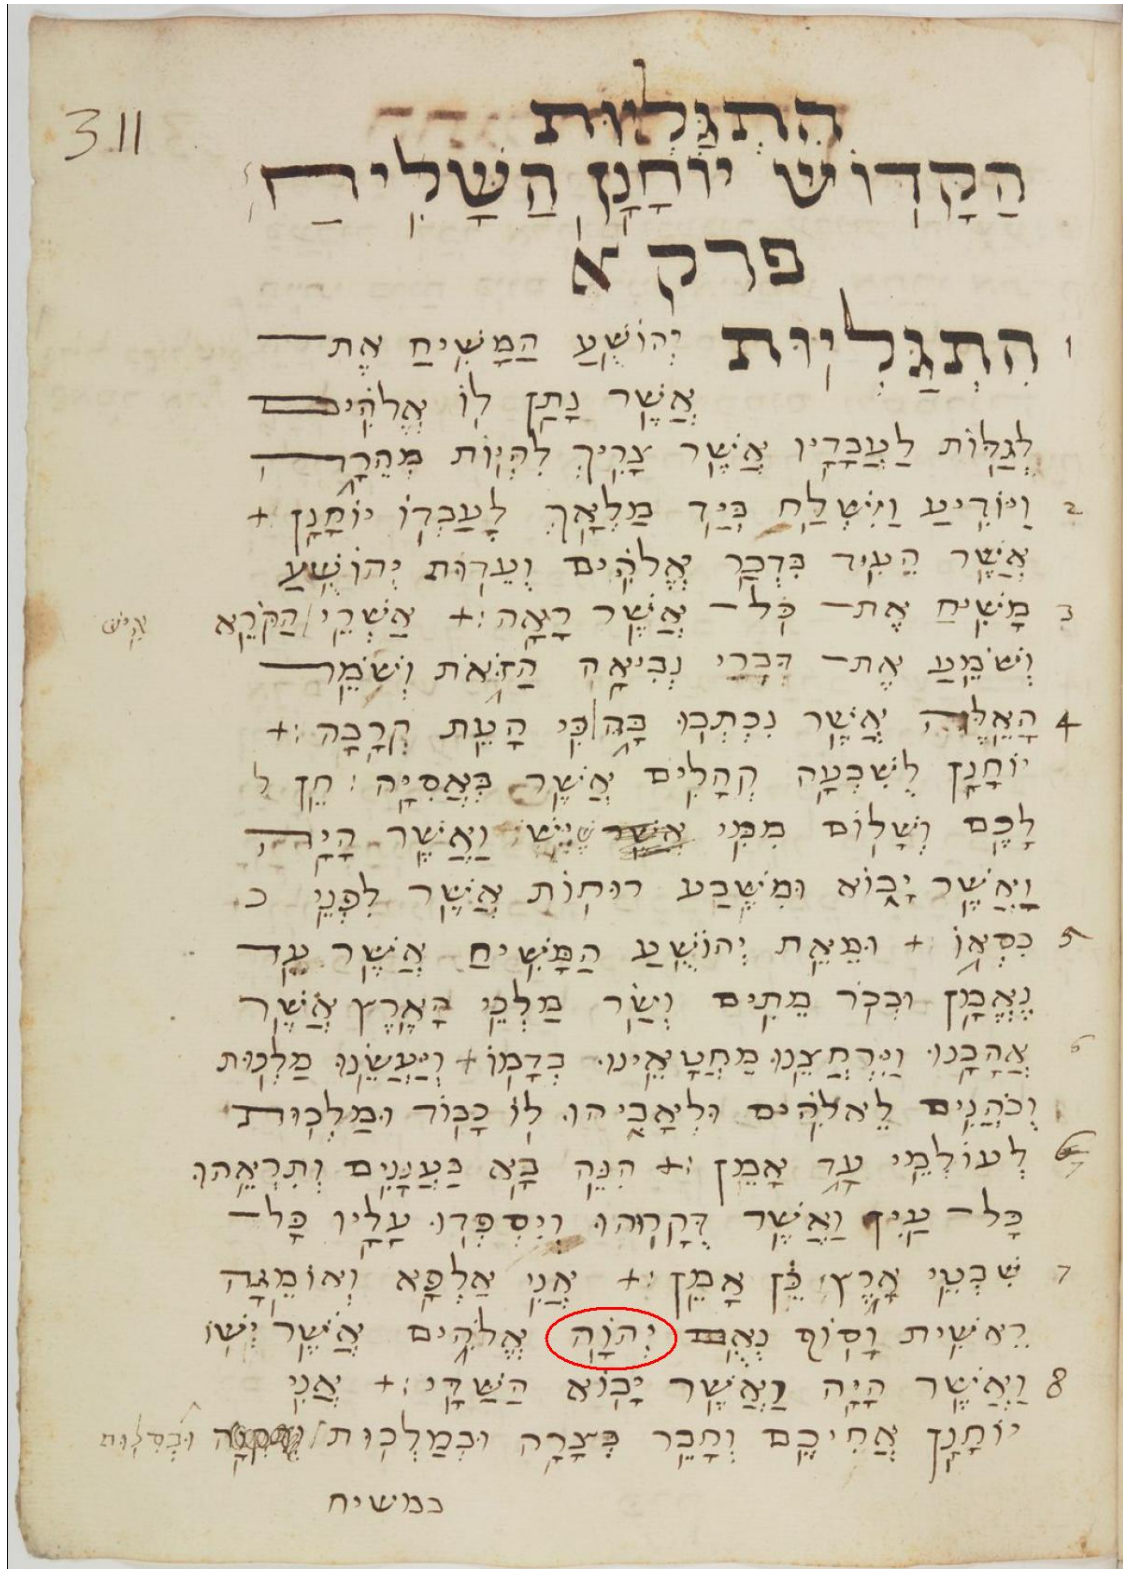 3 11
הִתְגַּלְּיוּת
הַקָּדוֹשׁ יוֹחָנָן הַשָּׁלִיחַ
פרק א
1 הִתְגַּלְּיוּת יְהוֹשֻׁעַ הַמָּשִׁיחַ אֶת־
אֲשֶׁר נָתַן לוֹ אֱלֹהִים
לְגַלּוֹת לַעֲבָדָיו אֲשֶׁר צָרִיךְ לִהְיוֹת מְהֵרָה
2 וַיּוֹדִיעַ וַיִּשְׁלַח בְּיַד מַלְאָךְ לְעַבְדּוֹ יוֹחָנָן +
אֲשֶׁר הֵעִיד בִּדְבַר אֱלֹהִים וְעֵדוּת יְהוֹשֻׁעַ
3 מָשִׁיחַ אֶת־ כֹּל־ אֲשֶׁר רָאָה :+ אַשְׁרֵי הַקֹּרֵא אִישׁ
וְשֹׁמֵעַ אֶת־ דִּבְרֵי נְבִיאָה הַזֹּאת וְשֹׁמֵר
4 הָאֵלֶּה אֲשֶׁר נִכְתְבוּ בָּהּ כִּי הָעֵת קְרָבָה :+
יוֹחָנָן לְשִׁבְעָה קְהָלִים אֲשֶׁר בְּאֲסִיָּה : חֵן ל
לָכֶם וְשָׁלוֹם מִמִּי שֶׁיֵּשׁ וַאֲשֶׁר הָיָה
וַאֲשֶׁר יָבוֹא וּמִשֶּׁבַע רוּחוֹת אֲשֶׁר לִפְנֵי כ
5 כִּסְאוֹ + וּמֵאֵת יְהוֹשֻׁעַ הַמָּשִׁיחַ אֲשֶׁר עֵד
נֶאֱמָן וּבְכֹר מֵתִים וְשַׂר מַלְכֵי הָאָרֶץ אֲשֶׁר
6 אֲהָבָנוּ וַיִּרְחֲצֵנוּ מֵחֲטָאֵינוּ בְּדָמוֹ + וְיַעֲשֵׂנוּ מַלְכוּת
וְכֹהֲנִים לֵאלֹהִים וּלְאָבִיהוּ לוֹ כָּבוֹד וּמַלְכוּת
לְעוֹלְמֵי עָד אָמֵן :+ הִנֵּה בָּא בַּעֲנָנִים וְתִרְאֵהוּ
כָּל־ עַיִן וַאֲשֶׁר דְּקָרֻהוּ וְיִסְפְּדוּ עָלָיו כָּל־
7 שִׁבְטֵי אָרֶץ כֵּן אָמֵן :+ אֲנִי אַלְפָא וְאוֹמֵגָה
רֵאשִׁית וְסוֹף נְאֻם יְהוָה אֱלֹהִים אֲשֶׁר יֶשׁוֹ
8 וַאֲשֶׁר הָיָה וַאֲשֶׁר יָבוֹא הַשַּׁדַּי :+ אֲנִי
יוֹחָנָן אֲחִיכֶם וְחָבֵר בְּצָרָה וּבְמַלְכוּת
במשיח